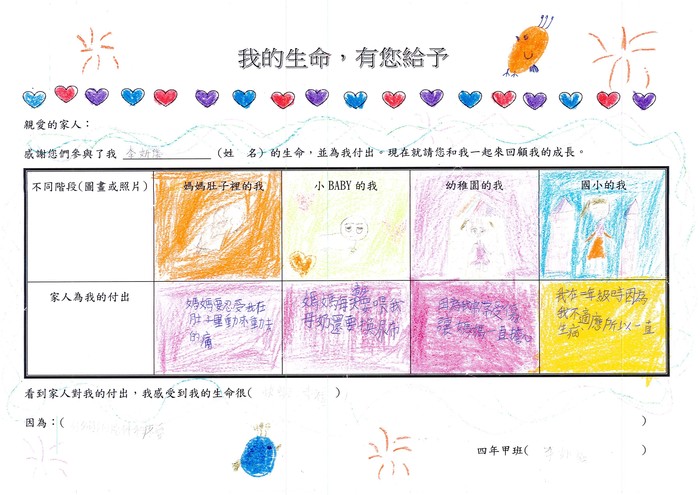 我的生命，有您給予
親愛的家人：
感謝您們參與了我 (姓 名) 的生命，並為我付出。現在就請您和我一起來回顧我的成長。
不同階段(圖畫或照片) 媽媽肚子裡的我 小 BABY 的我 幼稚園的我 國小的我
家人為我的付出
媽媽要忍受我在
肚子裡動來動去
的痛
媽媽每天都要餵我
母奶還要換尿布
因為我常常受傷
讓媽媽一直擔心
我在一年級時因為
我不適應所以一直
生病
看到家人對我的付出，我感受到我的生命很( )
因為：( )
四年甲班( )